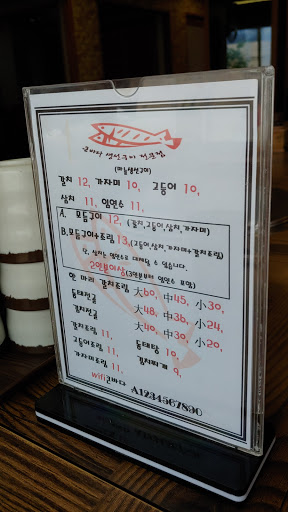 큰바다 생선구이 전문점
(화덕생선구이)
갈치 12, 가자미 10, 고등어 10,
삼치 11, 임연수 11,
A. 모듬구이 12, (갈치,고등어,삼치,가자미)
B.모듬구이+조림 13,(고등어,삼치,가자미+갈치조림)
단, 삼치는 임연수로 대체될 수 있습니다.
2인분이상(3인분부터 임연수 포함)
한 마리 갈치조림 大60, 中45, 小30,
동태전골 大48, 中36, 小24,
갈치전골 大40, 中30, 小20,
갈치조림 11, 동태탕 10,
고등어조림 11, 김치찌개 9,
가자미조림 11,
wifi큰바다 A1234567890